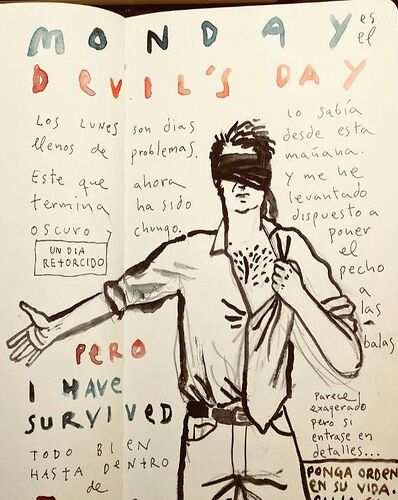 MONDAY es el
DEVIL'S DAY
Los LUNES son días
llenos de problemas.
Este que ahora
termina ha sido
oscuro, chungo.
UN DIA
RETORCIDO
Lo sabía
desde esta
mañana.
y me he
levantado
dispuesto a
poner
el
pecho
a
las
balas
PERO
I HAVE
SURVIVED
TODO BIEN
HASTA DENTRO
de
Parece
exagerado
pero si
entrase en
detalles...
PONGA ORDEN
EN SU VIDA.